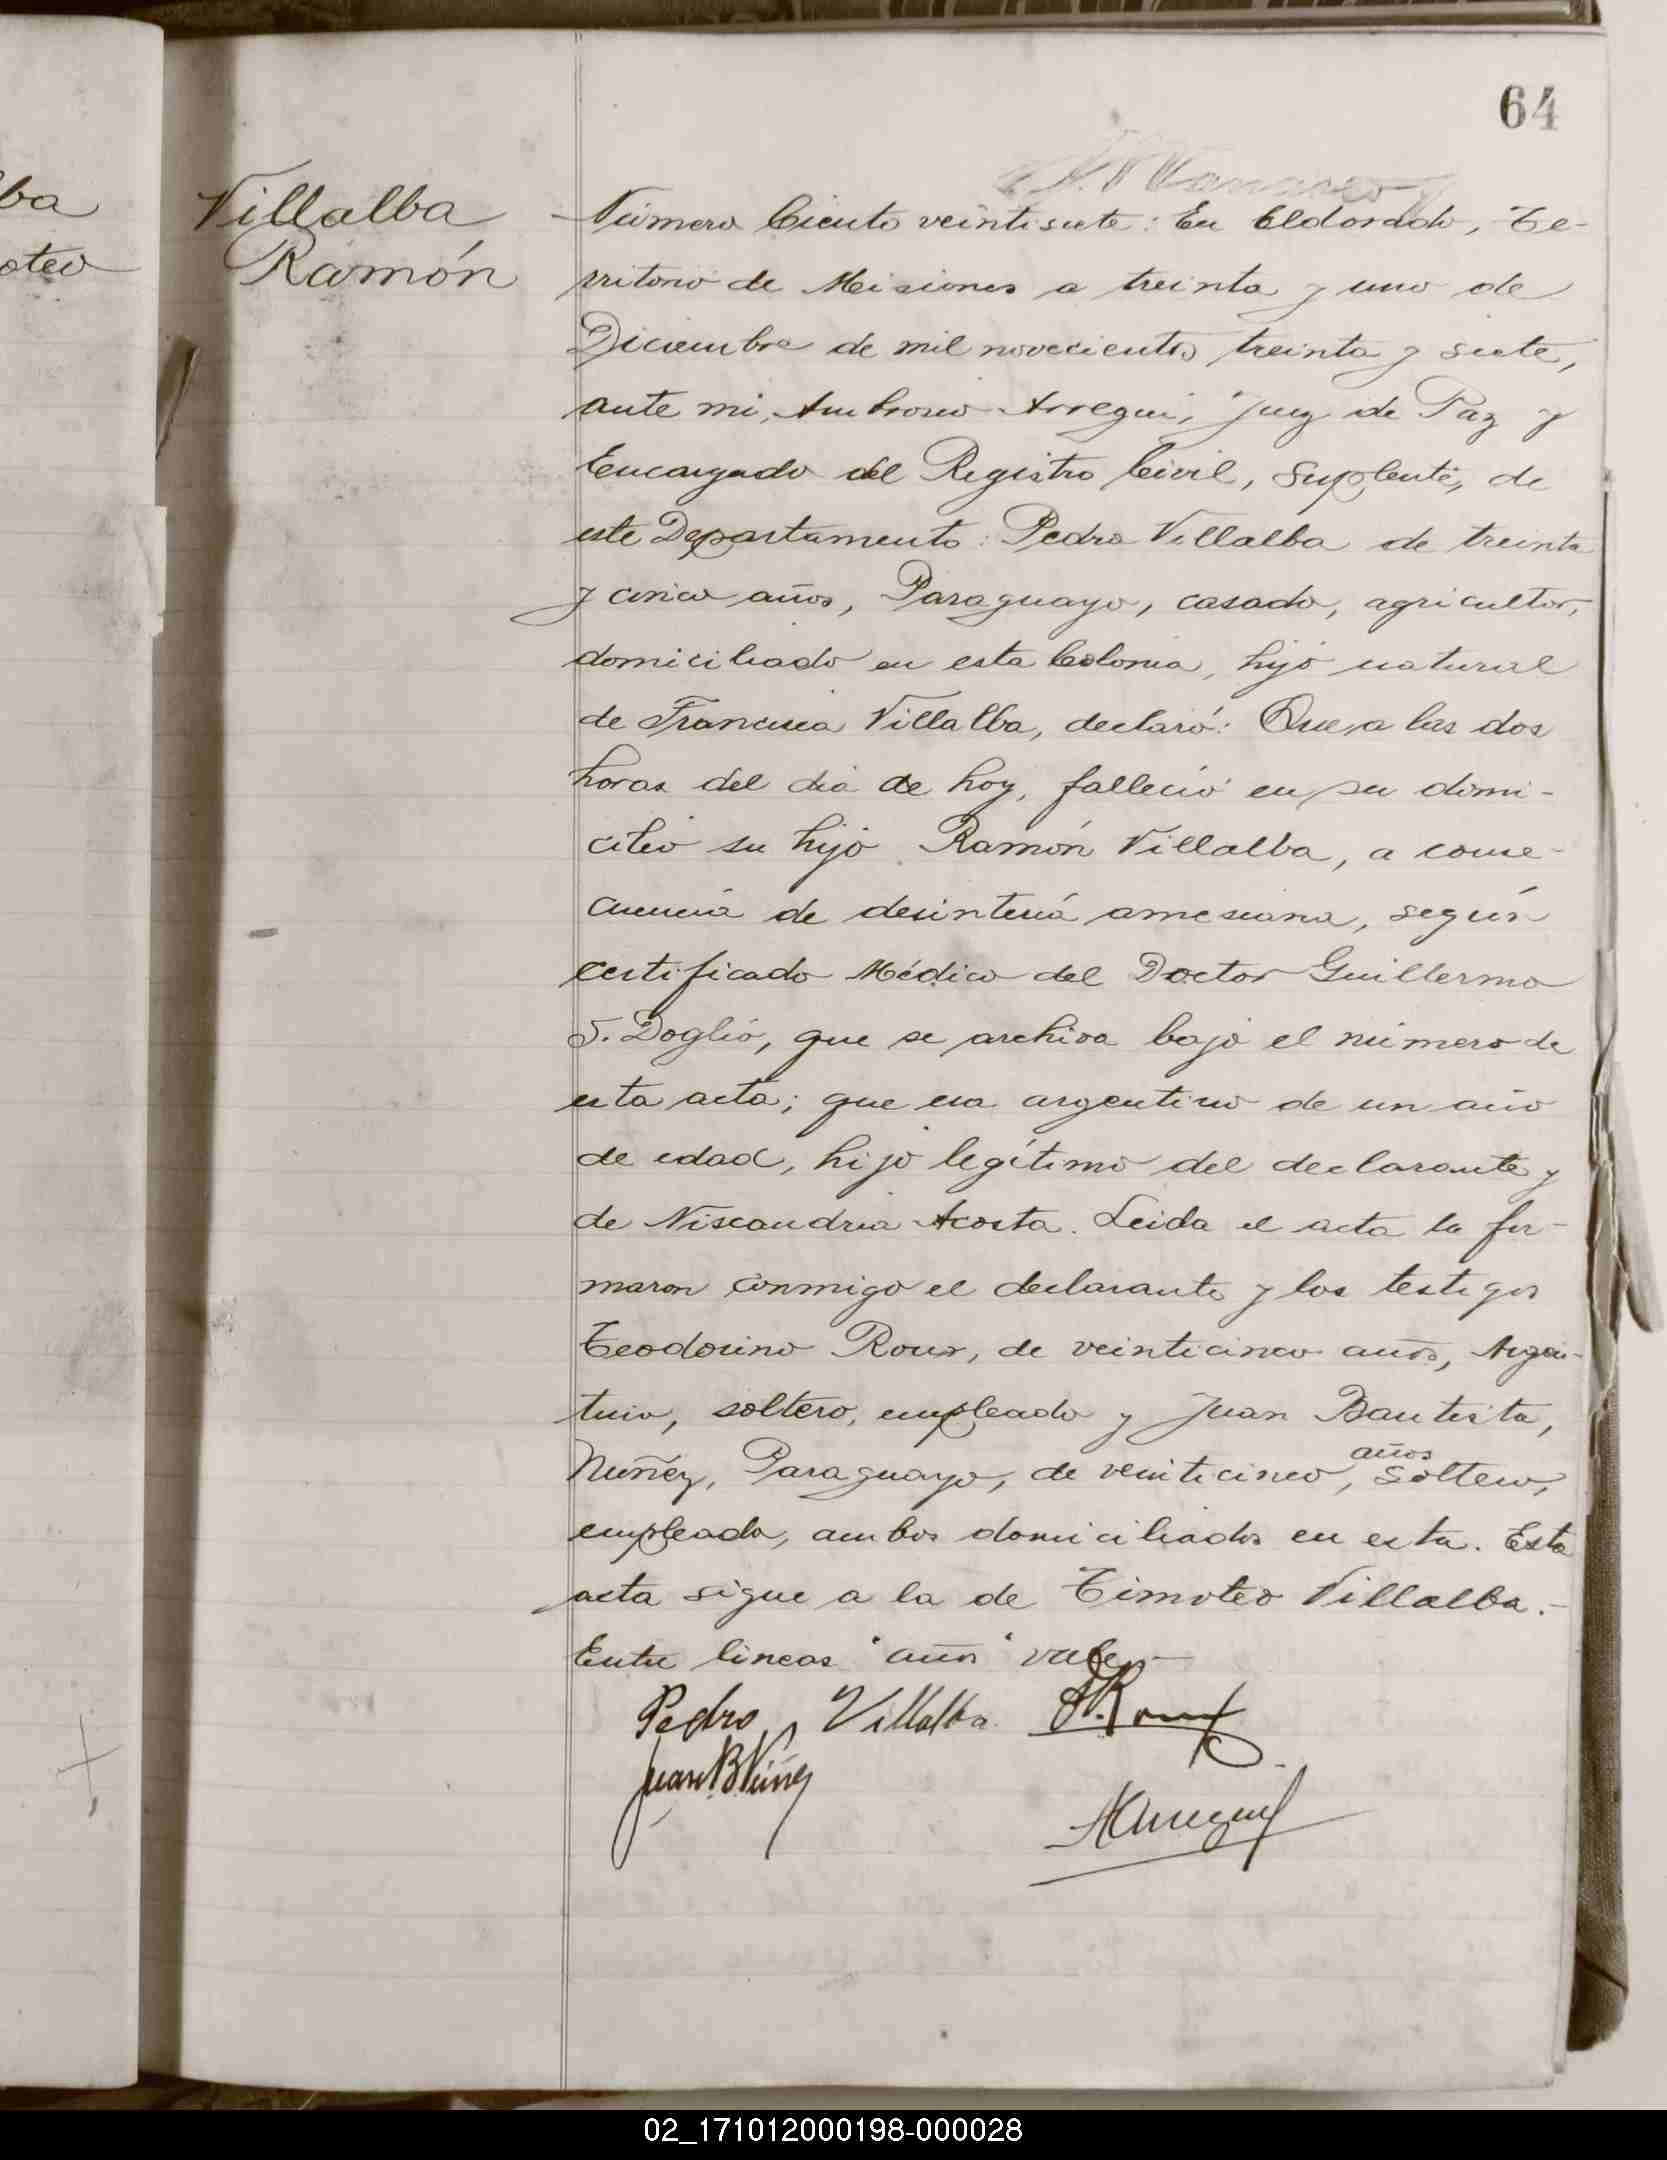 64
lba
oteo
Villalba
Ramón
Número Ciento veintisiete: En Eldorado, Te-
rritorio de Misiones a treinta y uno de
Diciembre de mil novecientos treinta y siete,
ante mi, Ambrosio Arregui, Juez de Paz y
Encargado del Registro Civil, Suplente, de
este Departamento: Pedro Villalba de treinta
y cinco años, Paraguayo, casado, agricultor,
domiciliado en esta Colonia, hijo natural
de Francisca Villalba, declaró: Que, a las dos
horas del día de hoy, falleció en su domi-
cilio su hijo Ramón Villalba, a conse-
cuencia de desintería amesiana, según
certificado Médico del Doctor Guillermo
J. Doglio, que se archiva bajo el número de
esta acta; que era argentino de un año
de edad, hijo legítimo del declarante y
de Niscandria Acosta. Leida el acta la fir-
maron conmigo el declarante y los testigos
Teodosino Roux, de veinticinco años, Argen-
tino, soltero, empleado y Juan Bautista,
Nuñéz, Paraguayo, de veinticinco, años soltero,
empleado, ambos domiciliados en esta. Esta
acta sigue a la de Timoteo Villalba.-
Entre lineas "años" vale-
Pedro Villalba
Juan B Núñez
AArregui
02_171012000198-000028